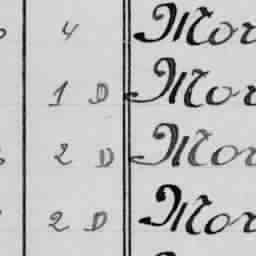 4 Mor
1 D Mor
2 D Mor
2 D Mor